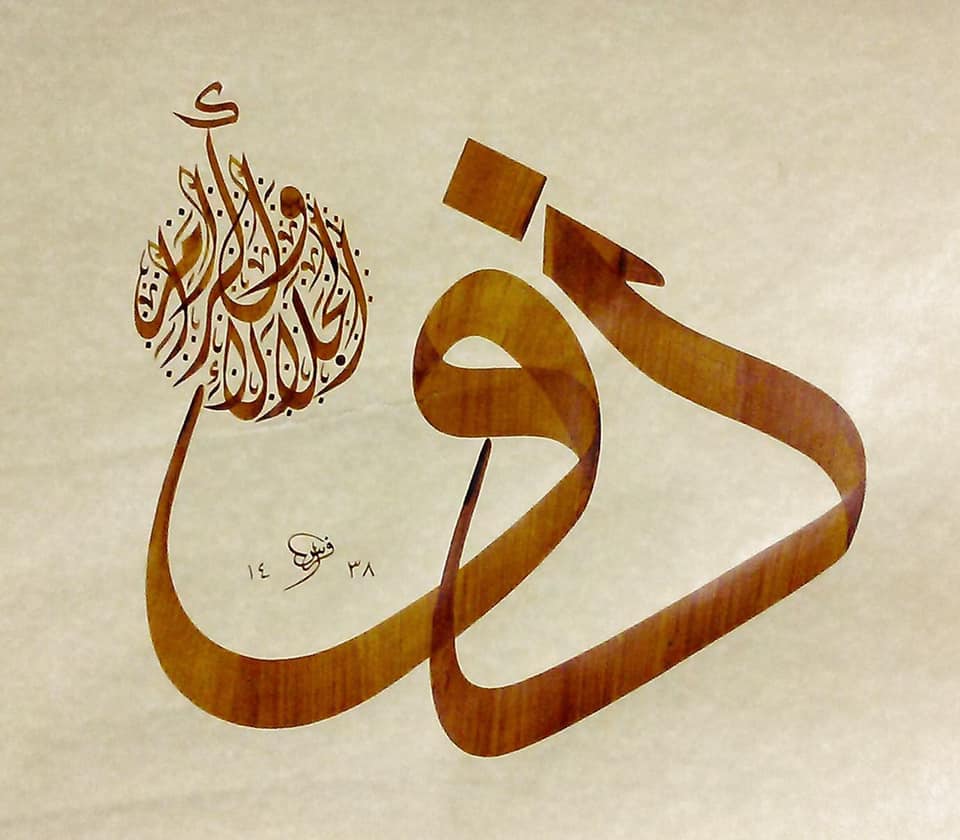 ذو الجلال والإكرام
١٤٣٨